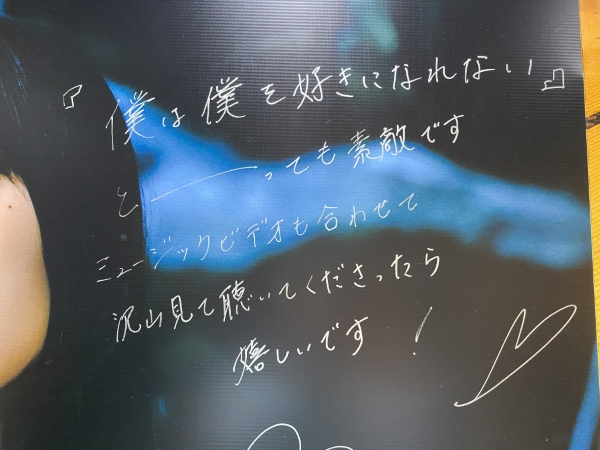 『僕は僕を好きになれない』
と――っても素敵です
ミュージックビデオも合わせて
沢山見て聴いてくださったら
嬉しいです!